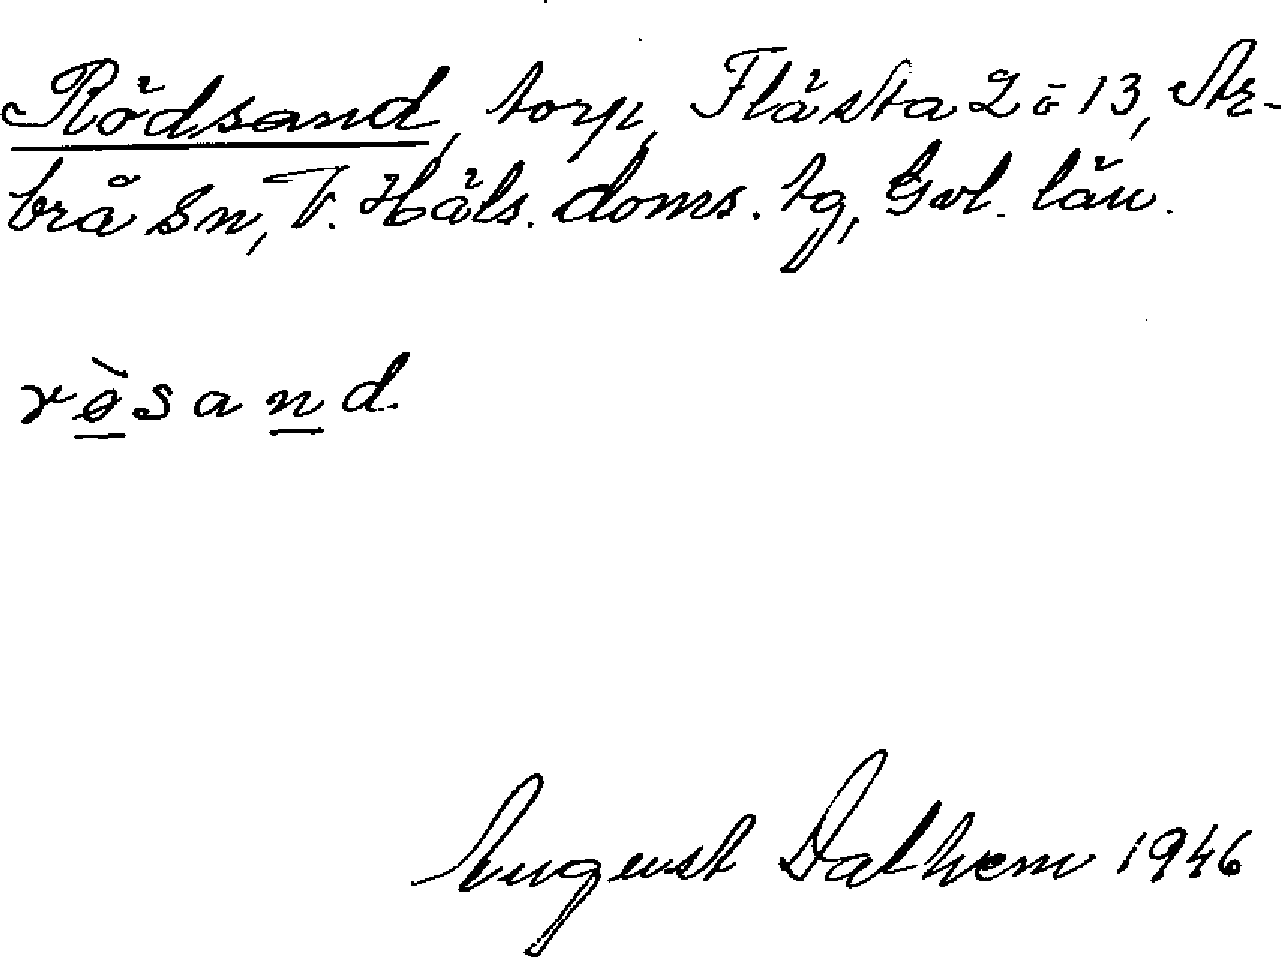 Rödsand, torp, Flästa 2 o 13, Ar-
brå sn, V. Häls. doms. tg, Gvl. län.
rø̀sand.
August Dalhem 1946